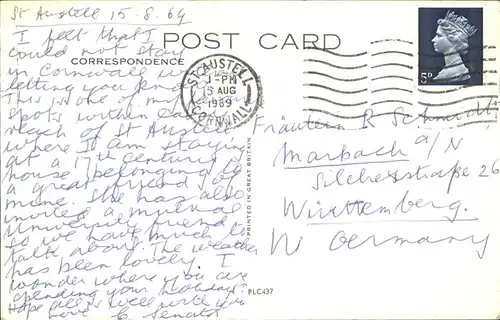 St Austell 15.8.69
I felt that I
could not stay
in Cornwall
letting you
This is one of my
spots within
reach of St Austell
where I am staying
at a 17th century
house belonging to
a great friend of
mine. She has also
invited a mutual
University friend
so we have much to
talk about. The weather
has been lovely. I
wonder where you are
spending your holidays.
Hope all is well with you
love E. Senator
POST CARD
CORRESPONDENCE
ST. AUSTELL
1-PM
15 AUG
1969
CORNWALL
5D
PRINTED IN GREAT BRITAIN
PLC437
Fräulein R Schmidt
Marbach a/N
Silcherstraße 26
Württemberg.
W Germany